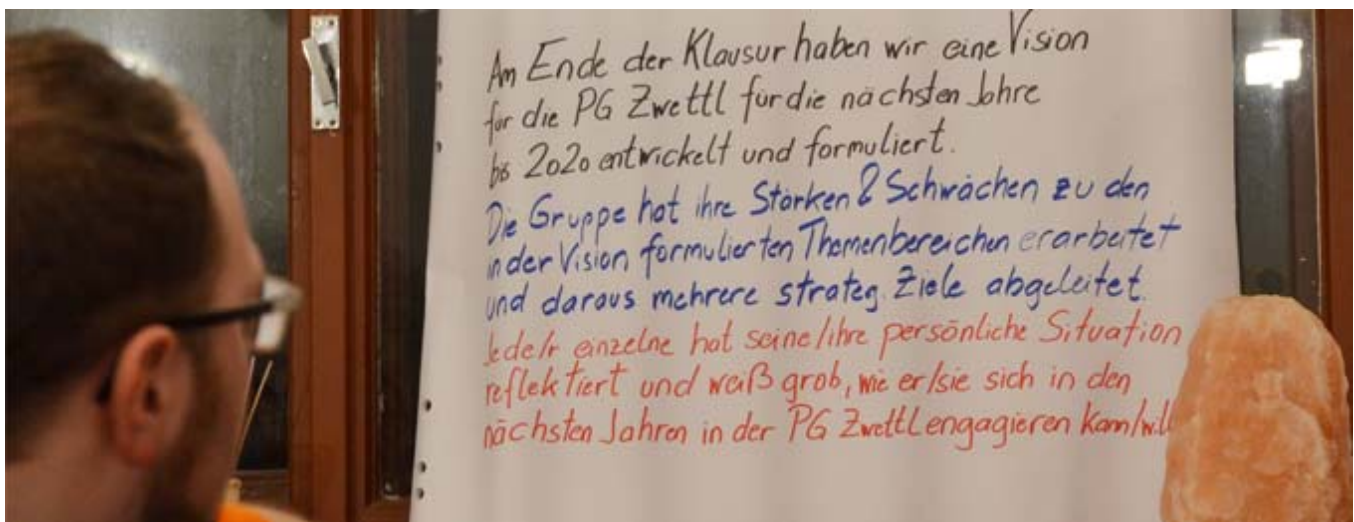 Am Ende der Klausur haben wir eine Vision
für die PG Zwettl für die nächsten Jahre
bis 2020 entwickelt und formuliert.
Die Gruppe hat ihre Stärken & Schwächen zu den
in der Vision formulierten Themenbereichen erarbeitet
und daraus mehrere strateg. Ziele abgeleitet.
Jede/r einzelne hat seine/ihre persönliche Situation
reflektiert und weiß grob, wie er/sie sich in den
nächsten Jahren in der PG Zwettl engagieren kann/will